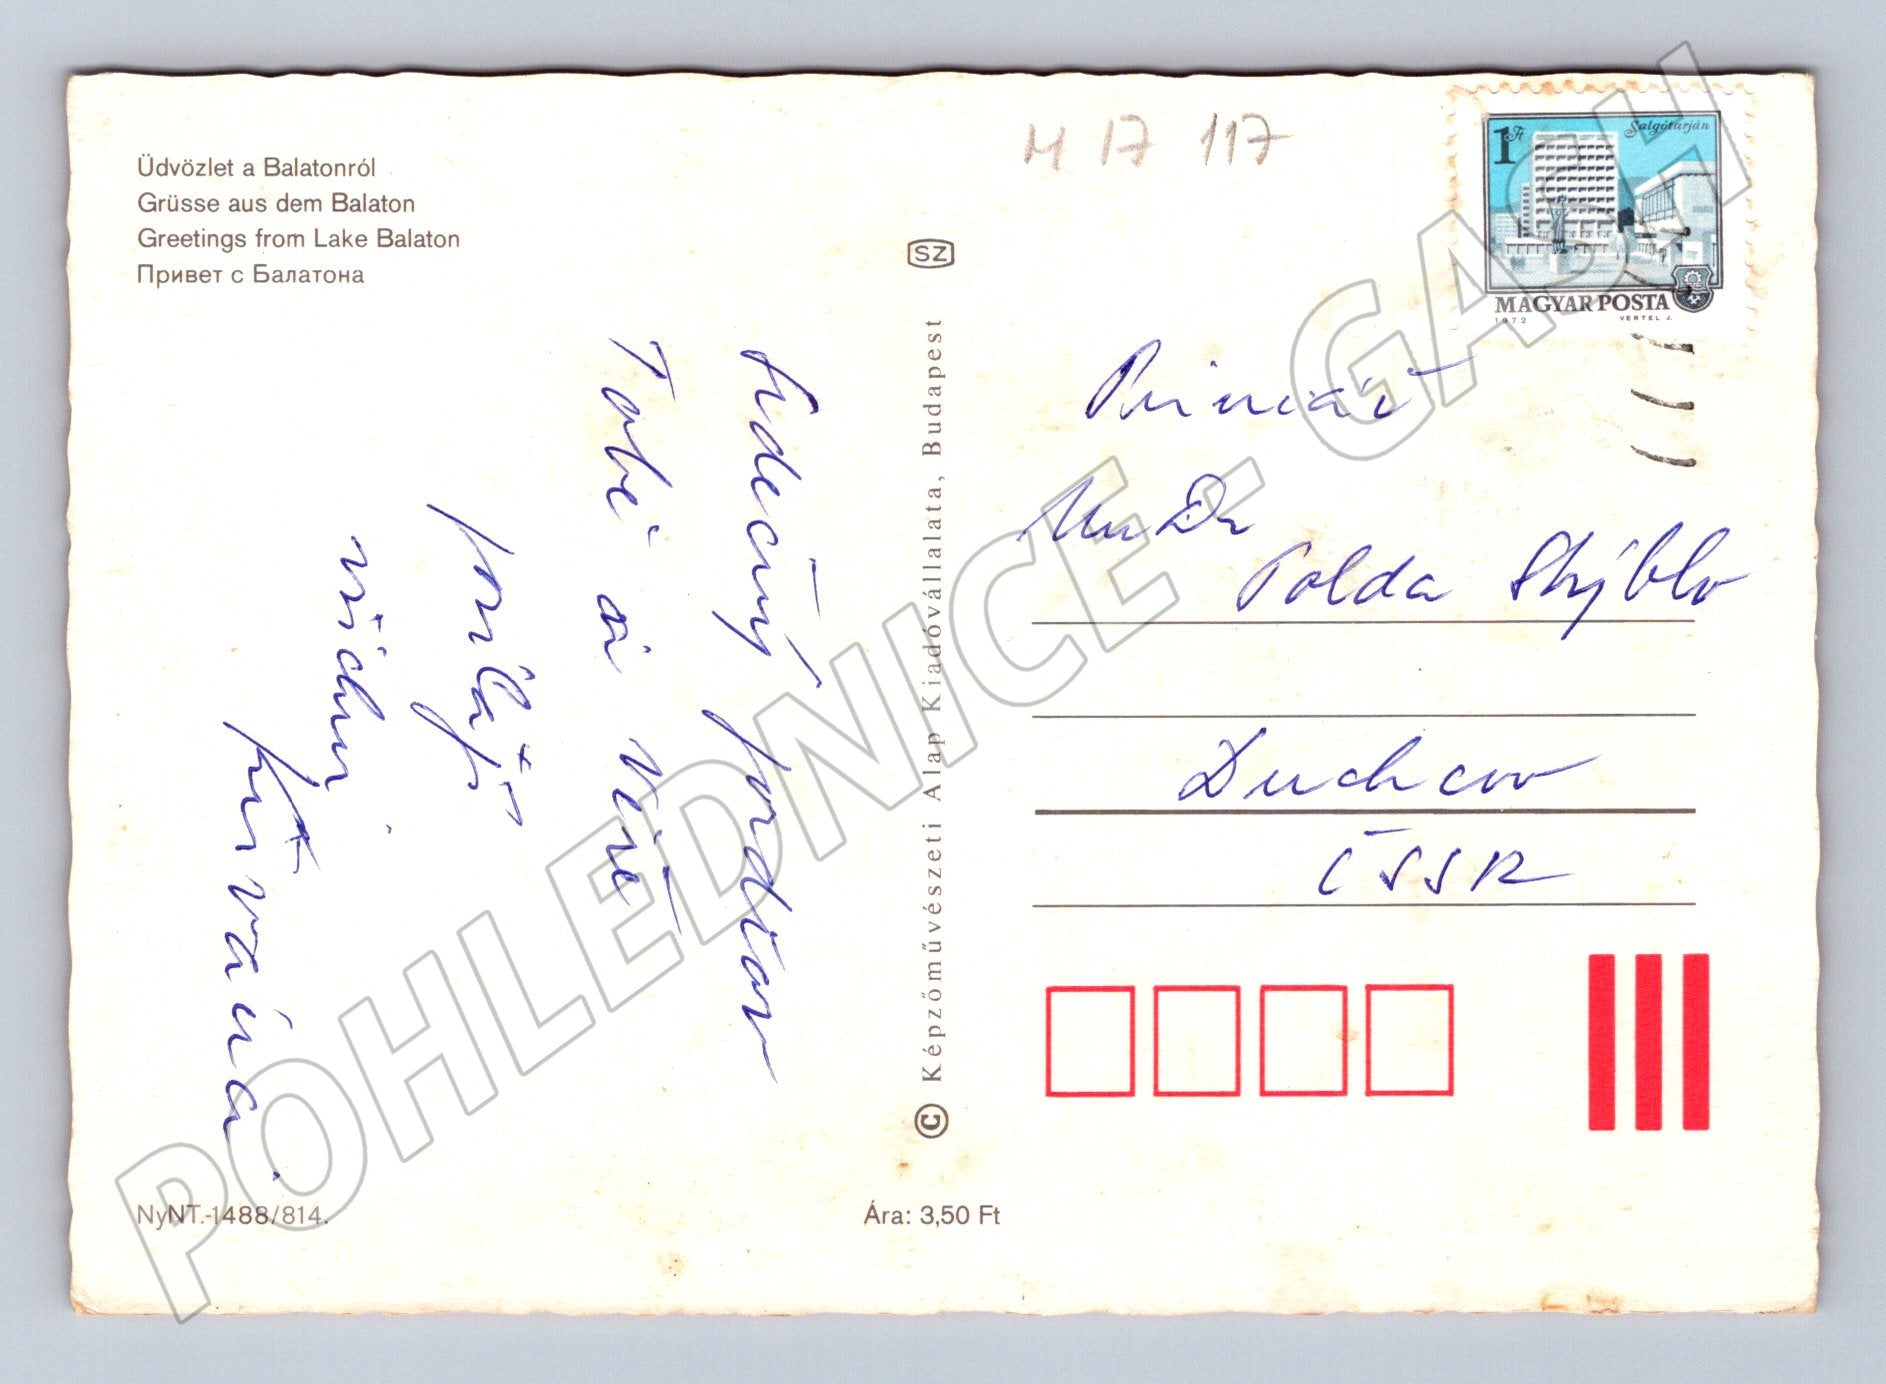 Üdvözlet a Balatonról
Grüsse aus dem Balaton
Greetings from Lake Balaton
Привет с Балатона
M 17 117
1 Ft
Salgótarján
MAGYAR POSTA
1972 VERTEL J.
SZ
Srdečný pozdrav
Tobě a
všichni
Primář
MuDr
Polda Stýblo
Duchcov
ČSSR
© Képzőművészeti Alap Kiadóvállalata, Budapest
NyNT.-1488/814.
Ára: 3,50 Ft
POHLEDNICE - GASH